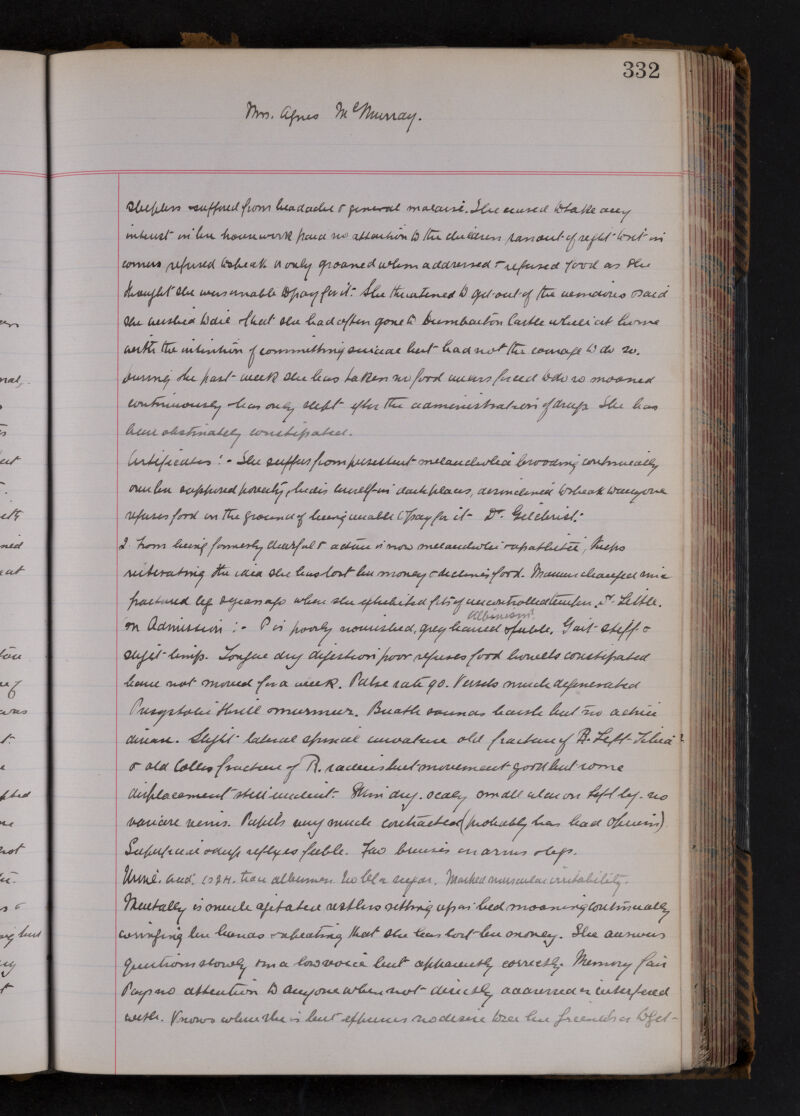 332
Mrs. Agnes McMurray.
sleepless & suffered from headache & general malaise. She ceased to take any
interest in her housework paid no attention to the children, ran out of sight to sit in
corners refused to speak or only groaned when addressed & refused food as she
thought she was unable to pay for it. She threatened to get out of the windows & said
she wished to die & that she had often gone to Dumbarton Castle whilst at home
with the intention of committing suicide but had not the courage to do so.
During the past week she has taken no food unless forced to do so moaned
continuously & has only slept after the administration of drugs. She has
been obstinately constipated.
Certificates :- She suffers from persistent melancholia brooding continually
over her supposed poverty, hides herself in dark places, disinclined to speak to anyone
refuses food on the ground of being unable to pay for it - Dr. Gilchrist.
2. From being formerly cheerful & active is now melancholic & apathetic, keeps
reiterating the idea she has lost her money & declines food. Manner changed since
fractured leg years ago when she exhibited fits of uncontrolled temper. Dr. Little.
On Admission :- P is poorly nourished, grey haired & feeble. Gait stiff &
slight limp. Tongue dry digestion poor refuses food bowels constipated
have not moved for a week. Pulse rate 90. Vessels much degenerated
Presystolic thrill & murmur. Breath sounds harsh but no active
disease. Slight lateral spinal curvature old fracture of Left Tibia?
& old Colles fracture of R. radius but movement good but some
displacement still evident. Skin dry. scaly small ulcer on left leg. no
varicose veins. Pupils very much contracted (probably has had opium).
Superficial & deep reflexes feeble. Few bruises on arms & legs.
Urine. acid. 1024. trace albumen. No bl or sugar. Marked muscular irritability.
Mentally is much agitated restless sitting up in bed moaning continually
wringing her hands & repeating that she has lost her money. She answers
questions slowly & in a low voice but apparently correctly. Memory fair
Pays no attention to anyone when not directly addressed or interfered
with. Knows where she is but expresses no desire to see her friends or to get